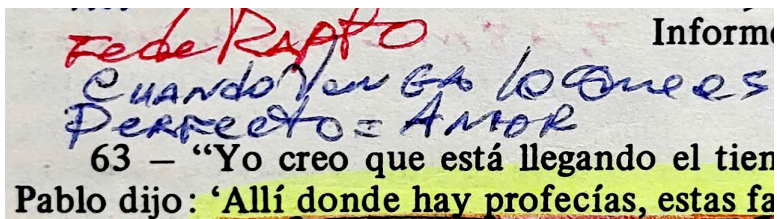 Fede RAPTO
Informe
CUANDO VENGA lo que es
PERFECTO = AMOR
63 – “Yo creo que está llegando el tien
Pablo dijo: ‘Allí donde hay profecías, estas fa